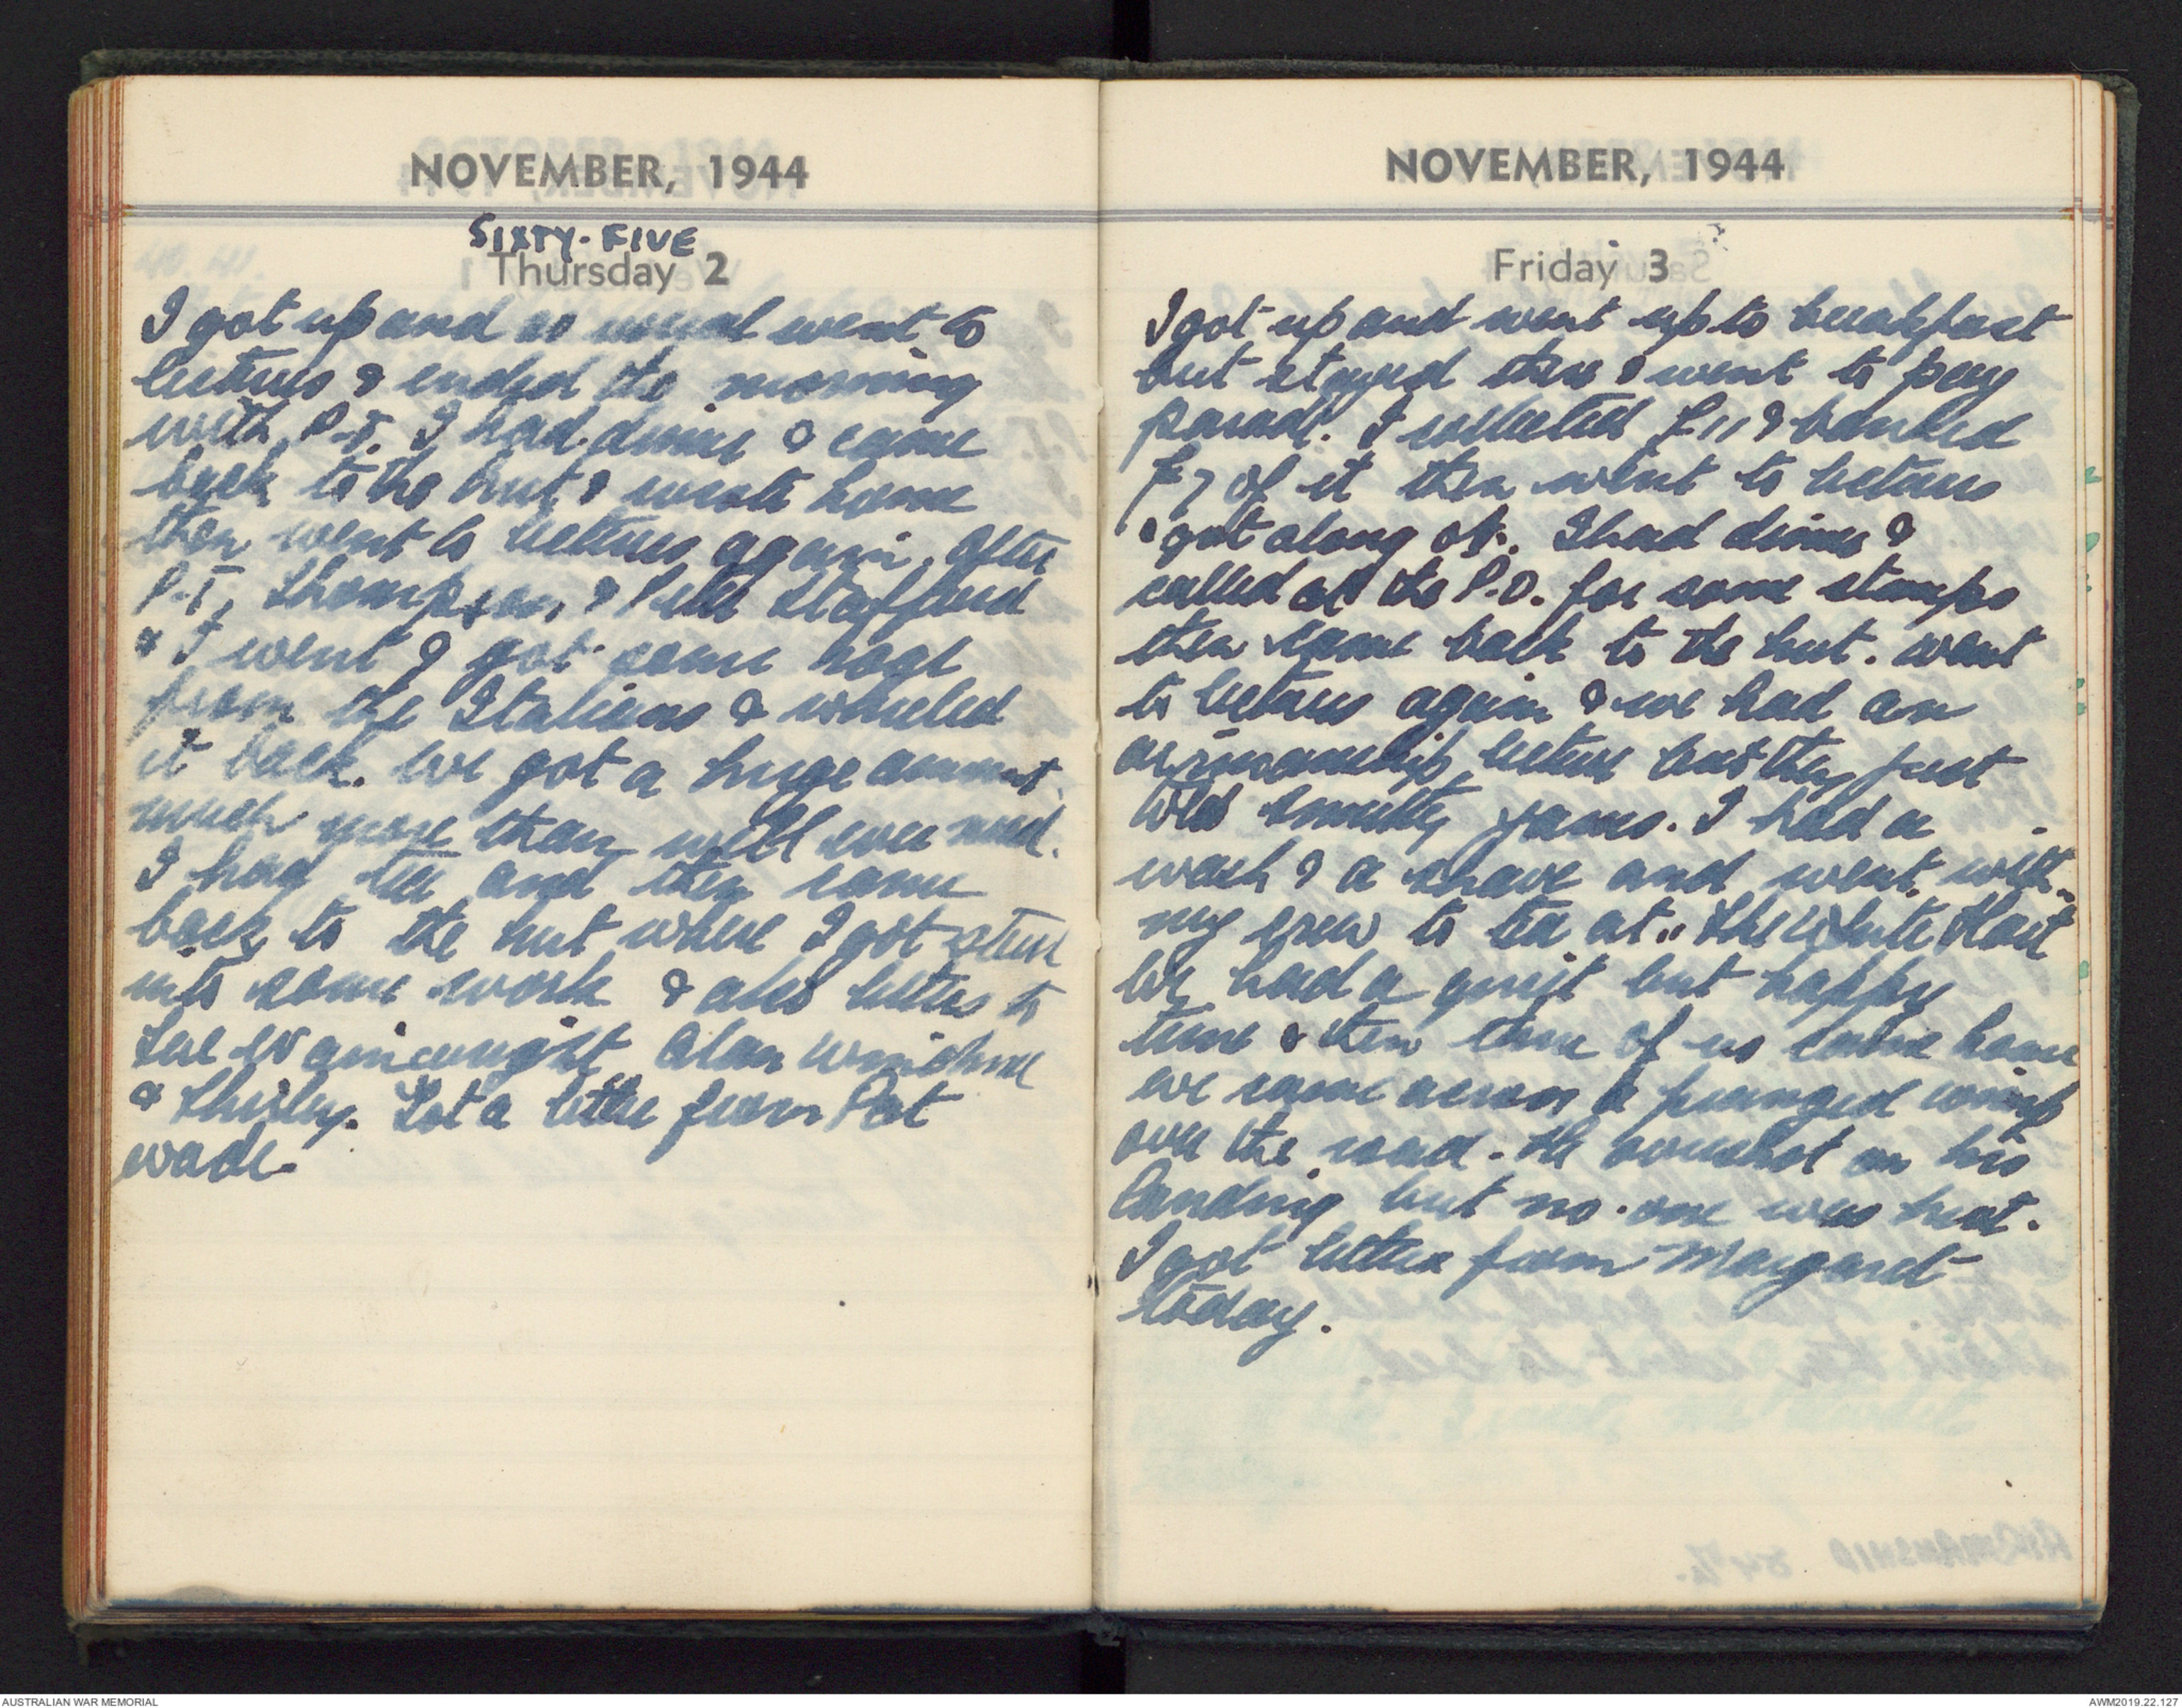 NOVEMBER, 1944
SIXTY-FIVE
Thursday 2
I got up and as usual went to
lectures & ended the morning
with P.T. I had dinner & came
back to the hut & wrote home
then went to lectures again. After
P.T, Thompson, & Stafford
& I went & got some
from the Italians & wheeled
it back. We got a huge amount,
much more than we'll ever need.
I had tea and then came
back to the hut where I got stuck
into some work & also letters to
Alan
& Shirley. Got a letter from Pat
Wade.
NOVEMBER, 1944
Friday 3
I got up and went up to breakfast
but stayed there & went to pay
parade. I collected £11 & banked
£7 of it then went to lectures
& got along ok. I had dinner &
called at the P.O. for some stamps
then came back to the hut. Went
to lectures again & we had an
airmanship lecture but they just
told smutty yarns. I had a
wash & a shave and went with
my crew to tea at "The White Hart
We had a quiet but happy
time & then three of us came home
we came across a pranged wimp
over the road. He overshot on his
landing but no-one was hurt.
I got letter from Margaret
today.
AUSTRALIAN WAR MEMORIAL
AWM2019.22.127